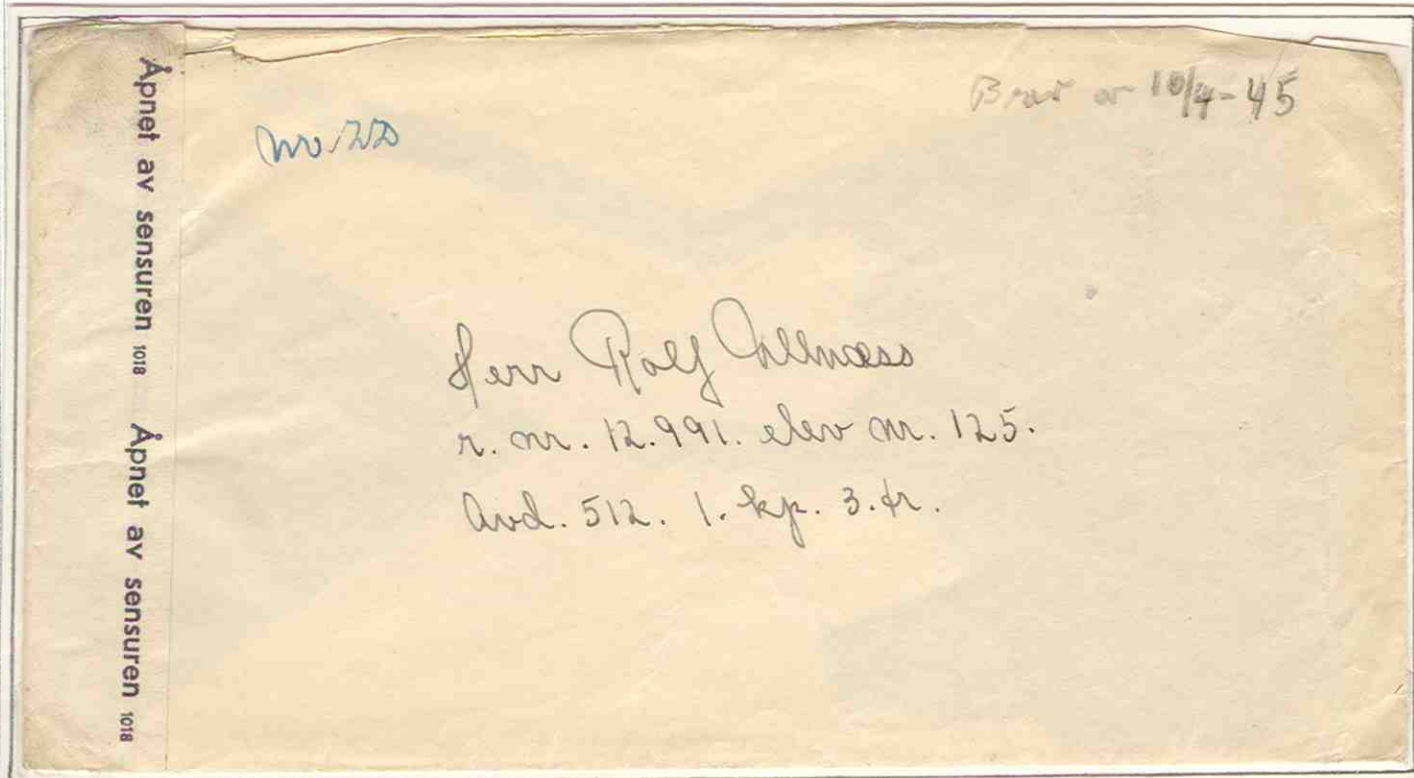 Åpnet av sensuren 1018 Åpnet av sensuren 1018
10/4-45
Herr Rolf
r. nr. 12.991. elev nr. 125.
Avd. 512. 1. kp. 3. tr.